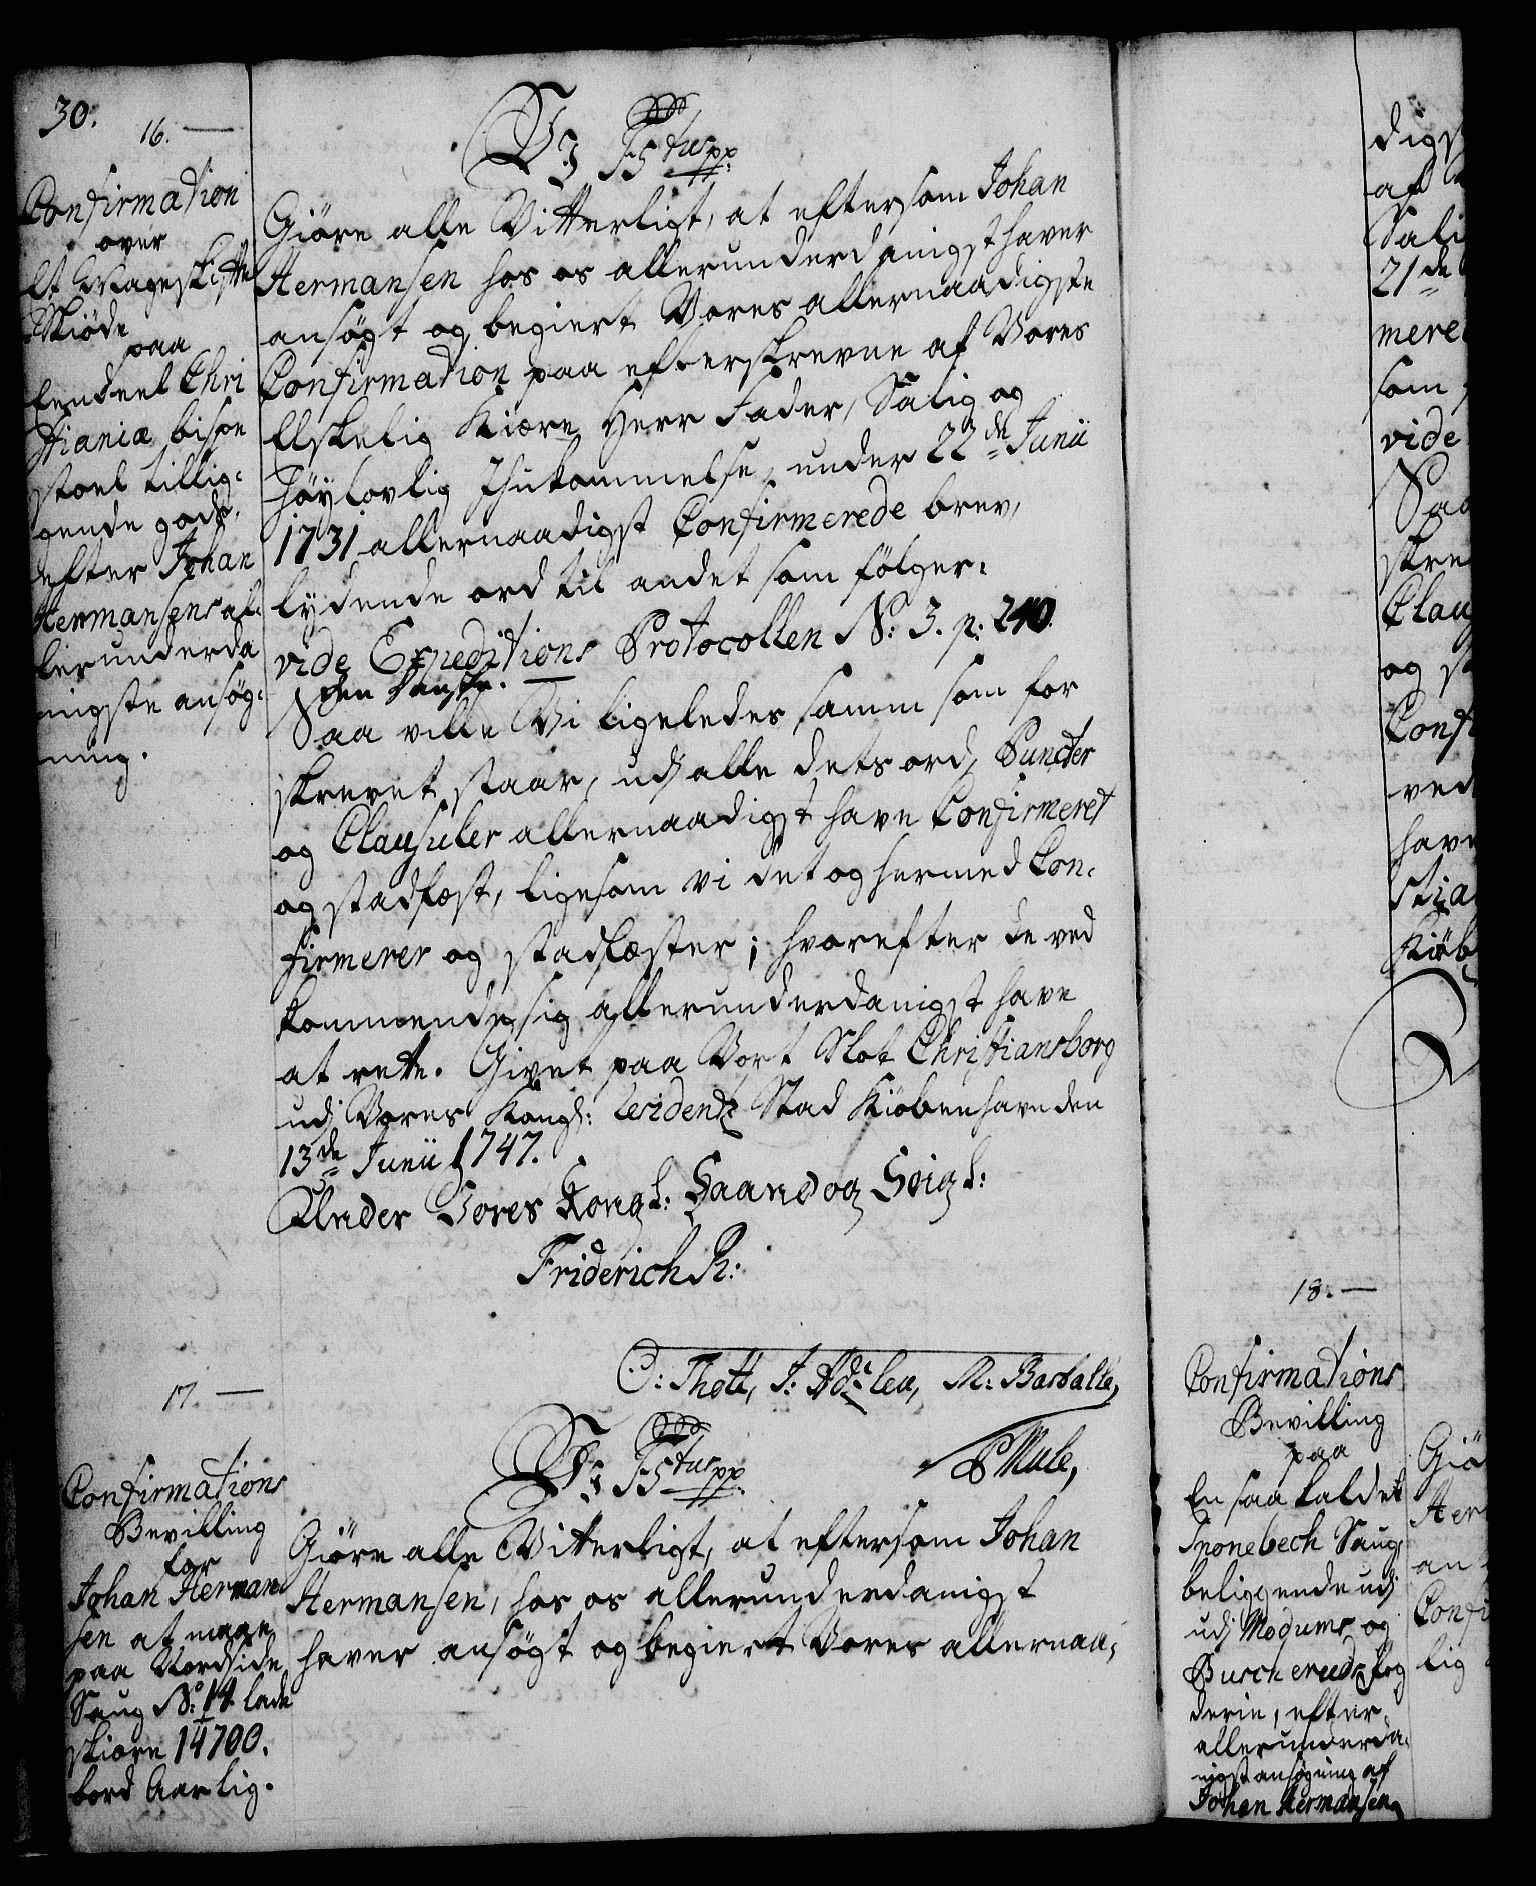 30.
16.
Confirmation
over
Et Mageskifte
Skiøde
paa
Eendeel Chri
stianiæ bispe
stoel tillig-
gende gods,
efter Johan
Hermansens al-
lerunderda
nigste ansøg-
ning.
Vj F 5tus pp.
Giøre alle Vitterligt, at eftersom Johan
Hermansen hos os allerunderdanigst haver
ansøgt og begiert Vores allernaadigste
Confirmation paa efterskrevne af Vores
Elskelig Kiære Herr Fader, Salig og
Høylovlig Ihukommelse, under 22de Junii
1731 allernaadigst Confirmerede brev,
lydende ord til andet som følger:
vide Expeditions Protocollen N: 3. p: 240.
den danske.
Saa ville Vi ligeledes samme som for
skrevet staar, udj alle dets ord, Puncter
og Clausuler allernaadigst have Confirmeret
og stadfæst, ligesom vi det og hermed Con-
firmerer og stadfæster; hvorefter de ved
kommende sig allerunderdanigst have
at rette. Givet paa Vort Slot Christiansborg
udj Vores Kongl: Residentz Stad Kiøbenhavn den
13de Junii 1747.
Under Vores Kongl: Haand og Seigl:
Friderich R:
O: Thott, J: Adeler, M: Barballe,
P Mule,
17.
Confirmations
Bevilling
for
Johan Herman
sen at maae
paa Nordside
Saug No: 14 lade
skiære 14700.
bord Aarlig.
Vj F 5tus pp.
Giøre alle Vitterligt, at eftersom Johan
Hermansen, hos os allerunderdanigst
haver ansøgt og begiert Vores allernaa-
18.
Confirmations
Bevilling
paa
En saa kaldet
Snonebech Saug
beliggende udj
udj Modums og
Buscheruds fog
derie, efter
allerunderda-
nigst ansøgning af
Johan Hermansen
digs
af
Sali
21de
mere
som
vide
Saa
skre
Clau
og s
Conf
ved
have
stia
Kiøb
Giø
Her
an
Confi
lig